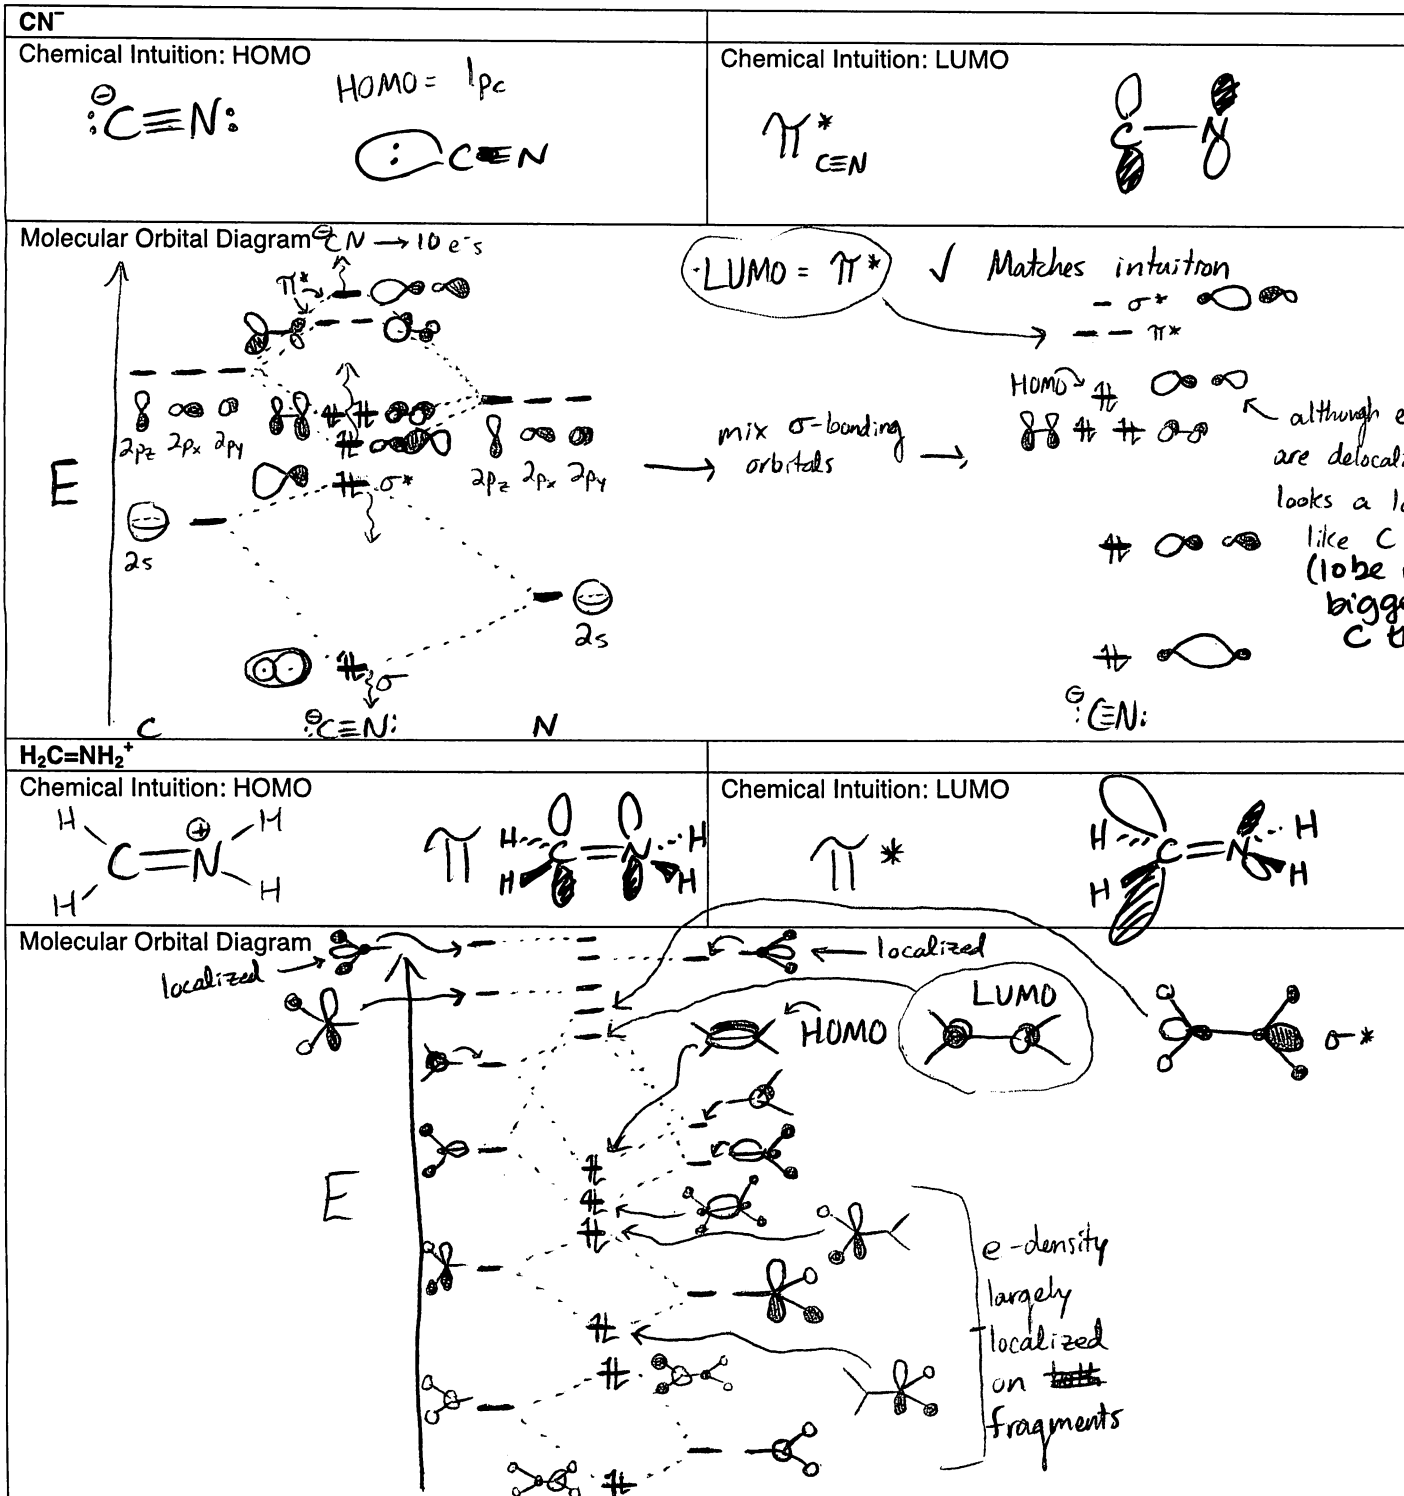 CN⁻
Chemical Intuition: HOMO
HOMO = lpc
⊖
:C≡N:
:C≡N
Chemical Intuition: LUMO
π*C≡N
C—N
Molecular Orbital Diagram ⊖CN → 10 e⁻s
π*
2pz 2px 2py
2pz 2px 2py
σ*
E
2s
2s
σ
C
⊖:C≡N:
N
LUMO = π* ✓ Matches intuition
σ*
π*
HOMO
mix σ-bonding
orbitals
although e
are delocali
looks a lo
like C
(lobe
bigge
C t
⊖:C≡N:
H₂C=NH₂⁺
Chemical Intuition: HOMO
H H
C=N⊕
H H
π
H H
C=N
H H
Chemical Intuition: LUMO
π*
H H
C=N
H H
Molecular Orbital Diagram
localized
localized
LUMO
HOMO
σ*
E
e-density
largely
localized
on
fragments